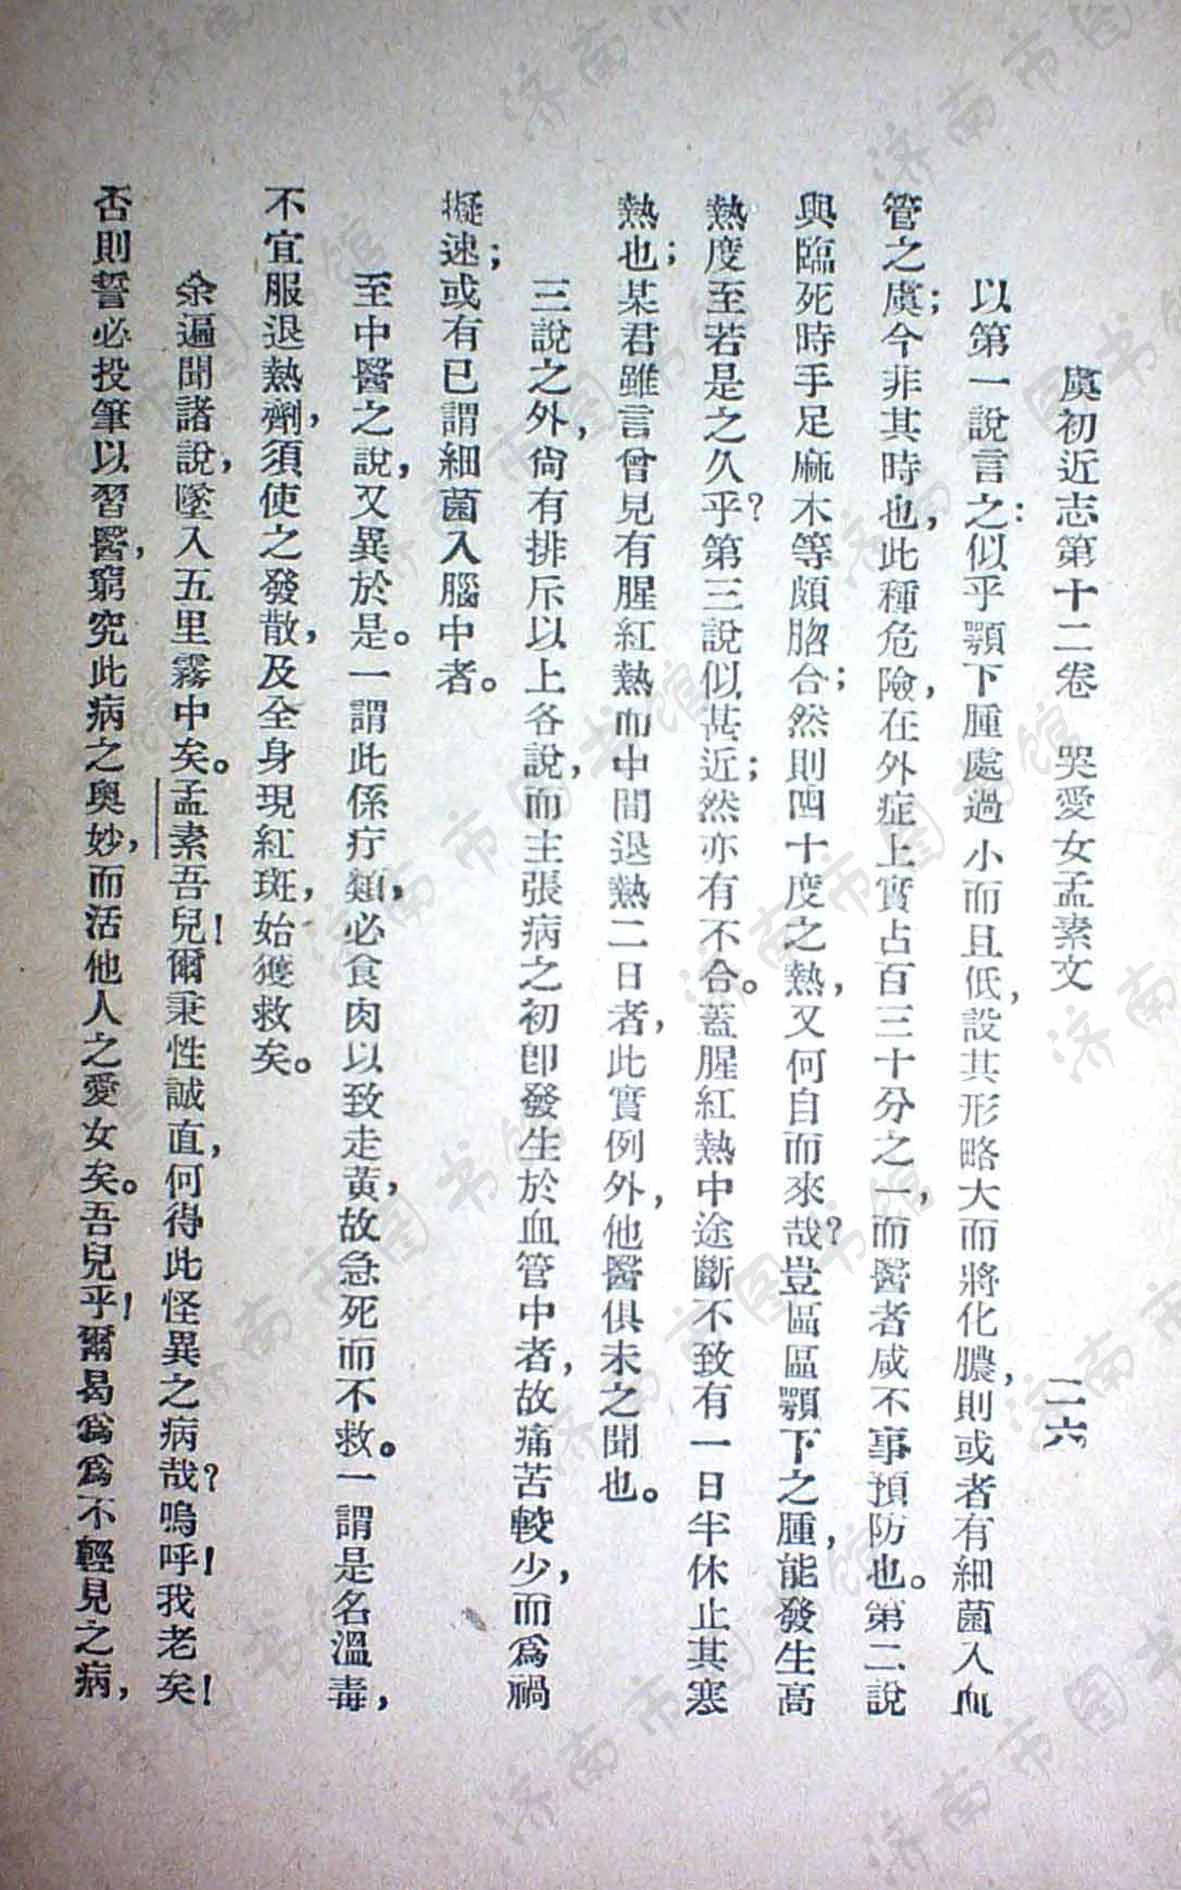 虞初近志第十二卷　哭愛女孟素文　二六
以第一說言之：似乎顎下腫處過小而且低，設其形略大而將化膿，則或者有細菌入血
管之虞；今非其時也，此種危險，在外症上實占百三十分之一，而醫者咸不事預防也。第二說
與臨死時手足麻木等頗脗合；然則四十度之熱，又何自而來哉？豈區區顎下之腫，能發生高
熱度至若是之久乎？第三說似甚近；然亦有不合。蓋腥紅熱中途斷不致有一日半休止其寒
熱也；某君雖言曾見有腥紅熱而中間退熱二日者，此實例外，他醫俱未之聞也。
三說之外，尙有排斥以上各說，而主張病之初卽發生於血管中者，故痛苦較少，而爲禍
擬速；或有已謂細菌入腦中者。
至中醫之說，又異於是。一謂此係疔類，必食肉以致走黃，故急死而不救。一謂是名溫毒，
不宜服退熱劑，須使之發散，及全身現紅斑，始獲救矣。
余遍聞諸說，墜入五里霧中矣。孟素吾兒！爾秉性誠直，何得此怪異之病哉？嗚呼！我老矣！
否則誓必投筆以習醫，窮究此病之奧妙，而活他人之愛女矣。吾兒乎！爾曷爲爲不輕見之病，
济南市图书馆